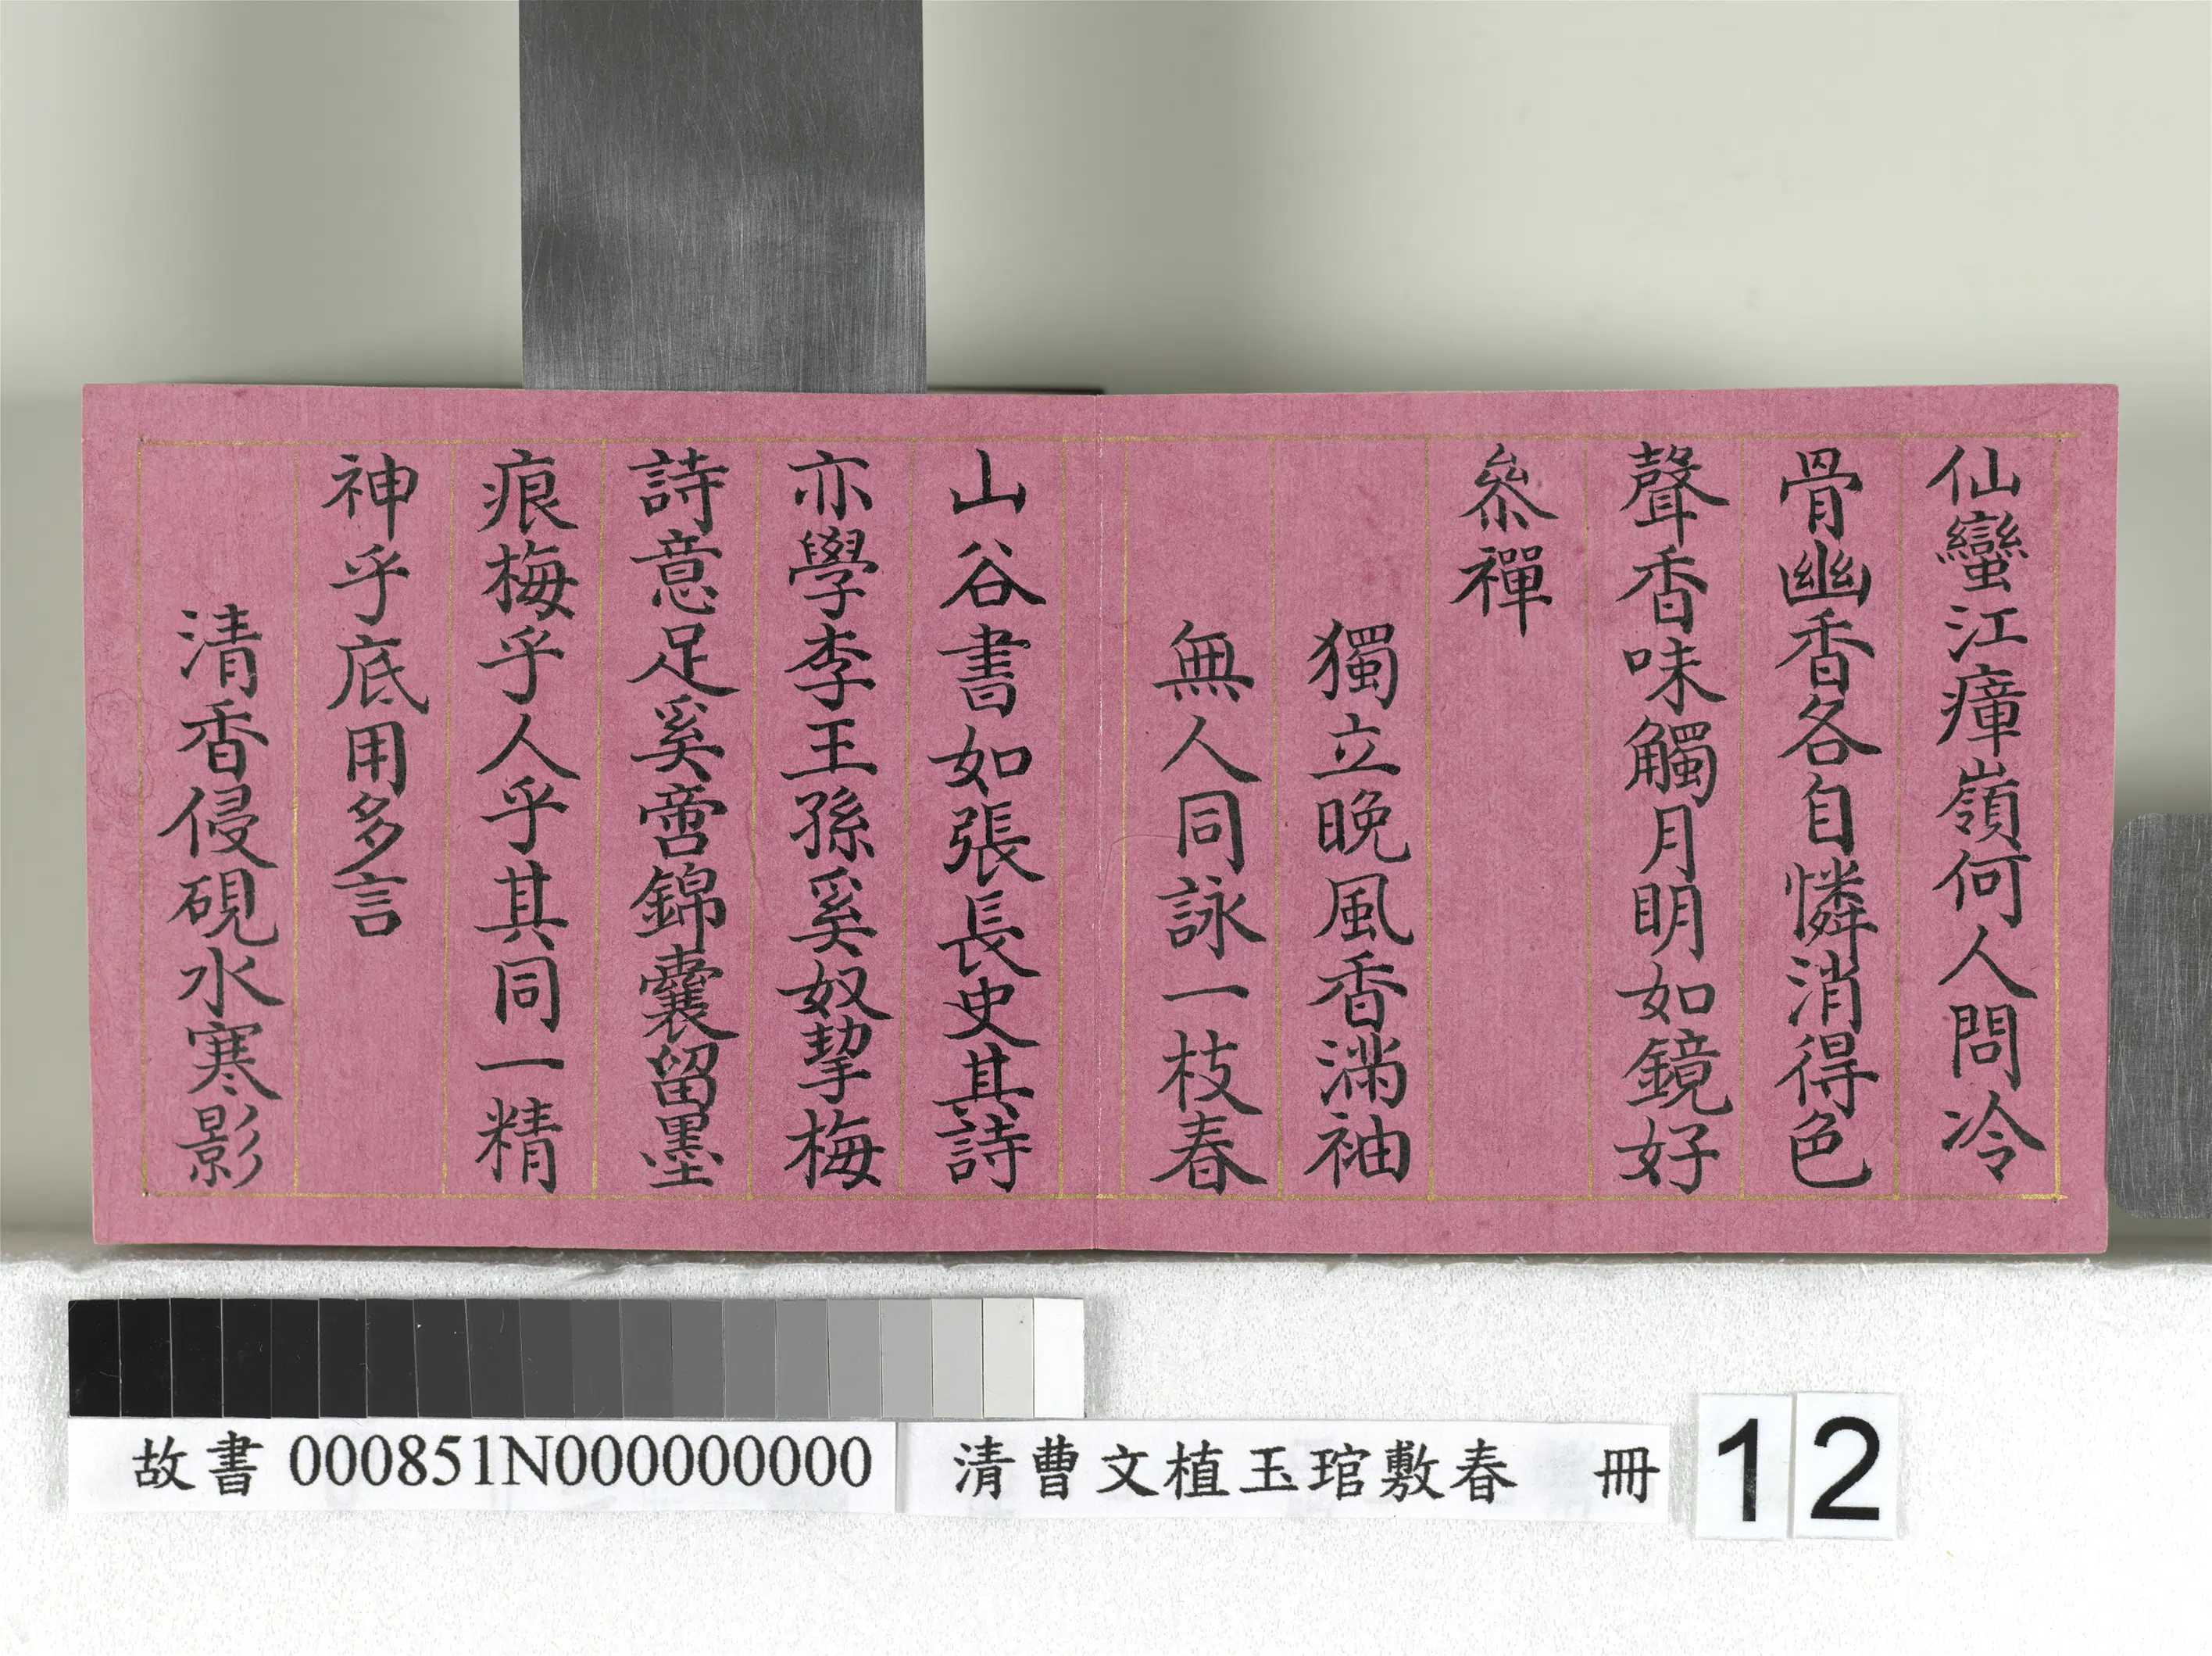 仙蠻江瘴嶺何人問冷
骨幽香各自憐消得色
聲香味觸月明如鏡好
叅禪
獨立晚風香滿袖
無人同詠一枝春
山谷書如張長史其詩
亦學李王孫奚奴挈梅
詩意足奚啻錦囊留墨
痕梅乎人乎其同一精
神乎底用多言
清香侵硯水寒影
故書 000851N000000000 清曹文植玉琯敷春 冊 12